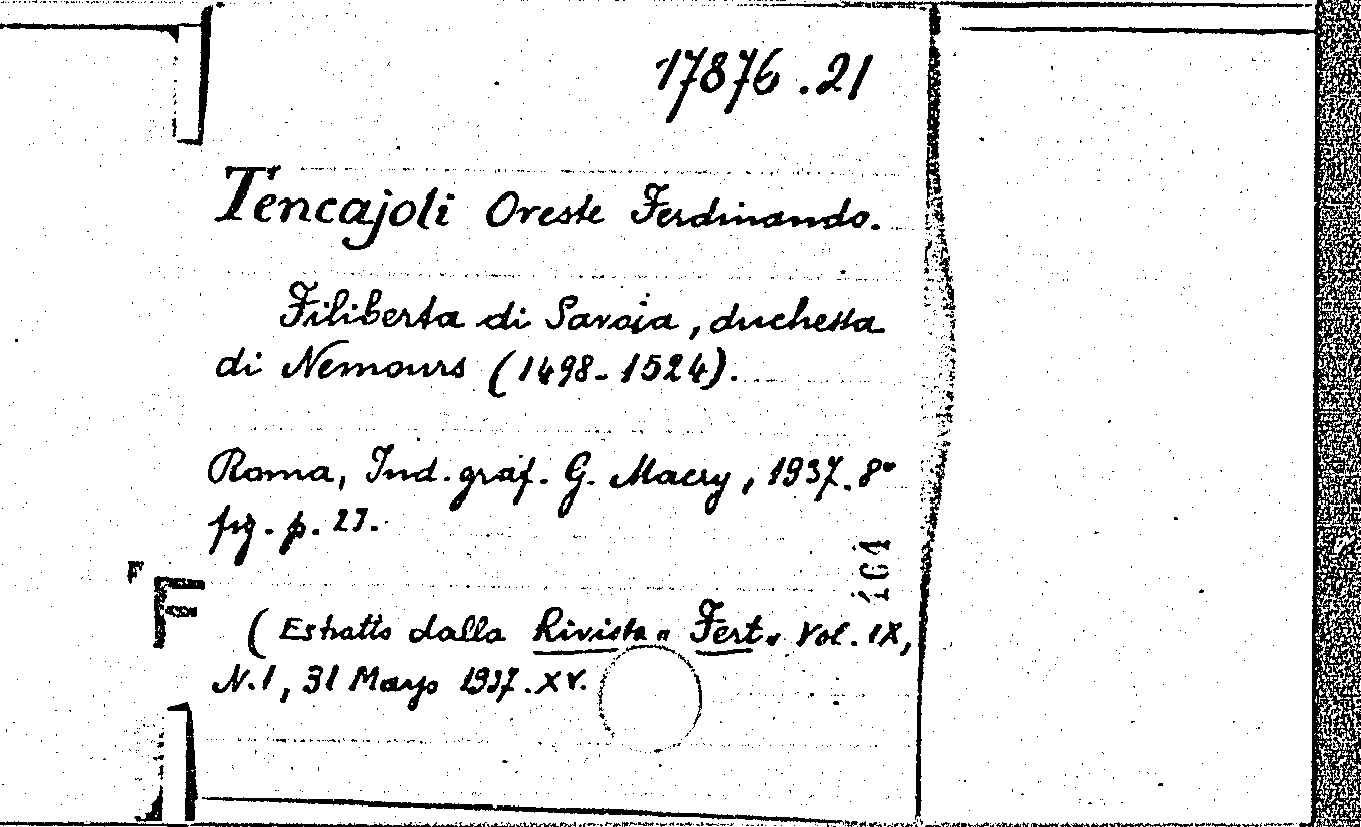 17876.21
Tencajoli Oreste Ferdinando.
Filiberta di Savoia, duchessa
di Nemours (1498-1524).
Roma, Ind. graf. G. Macry, 1937. 8°
fig. p. 27.
104
F
F
(Estratto dalla Rivista " Fert " Vol. IX,
N.1, 31 Marzo 1937.XV.